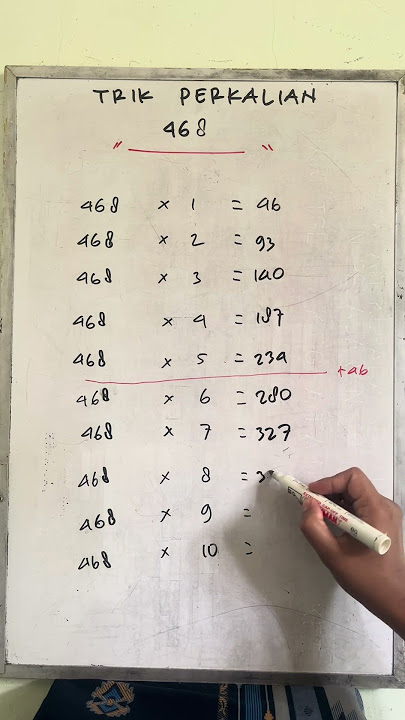 TRIK PERKALIAN
468
" "
468 x 1 = 46
468 x 2 = 93
468 x 3 = 140
468 x 4 = 187
468 x 5 = 234
+46
468 x 6 = 280
468 x 7 = 327
468 x 8 = 37
468 x 9 =
468 x 10 =